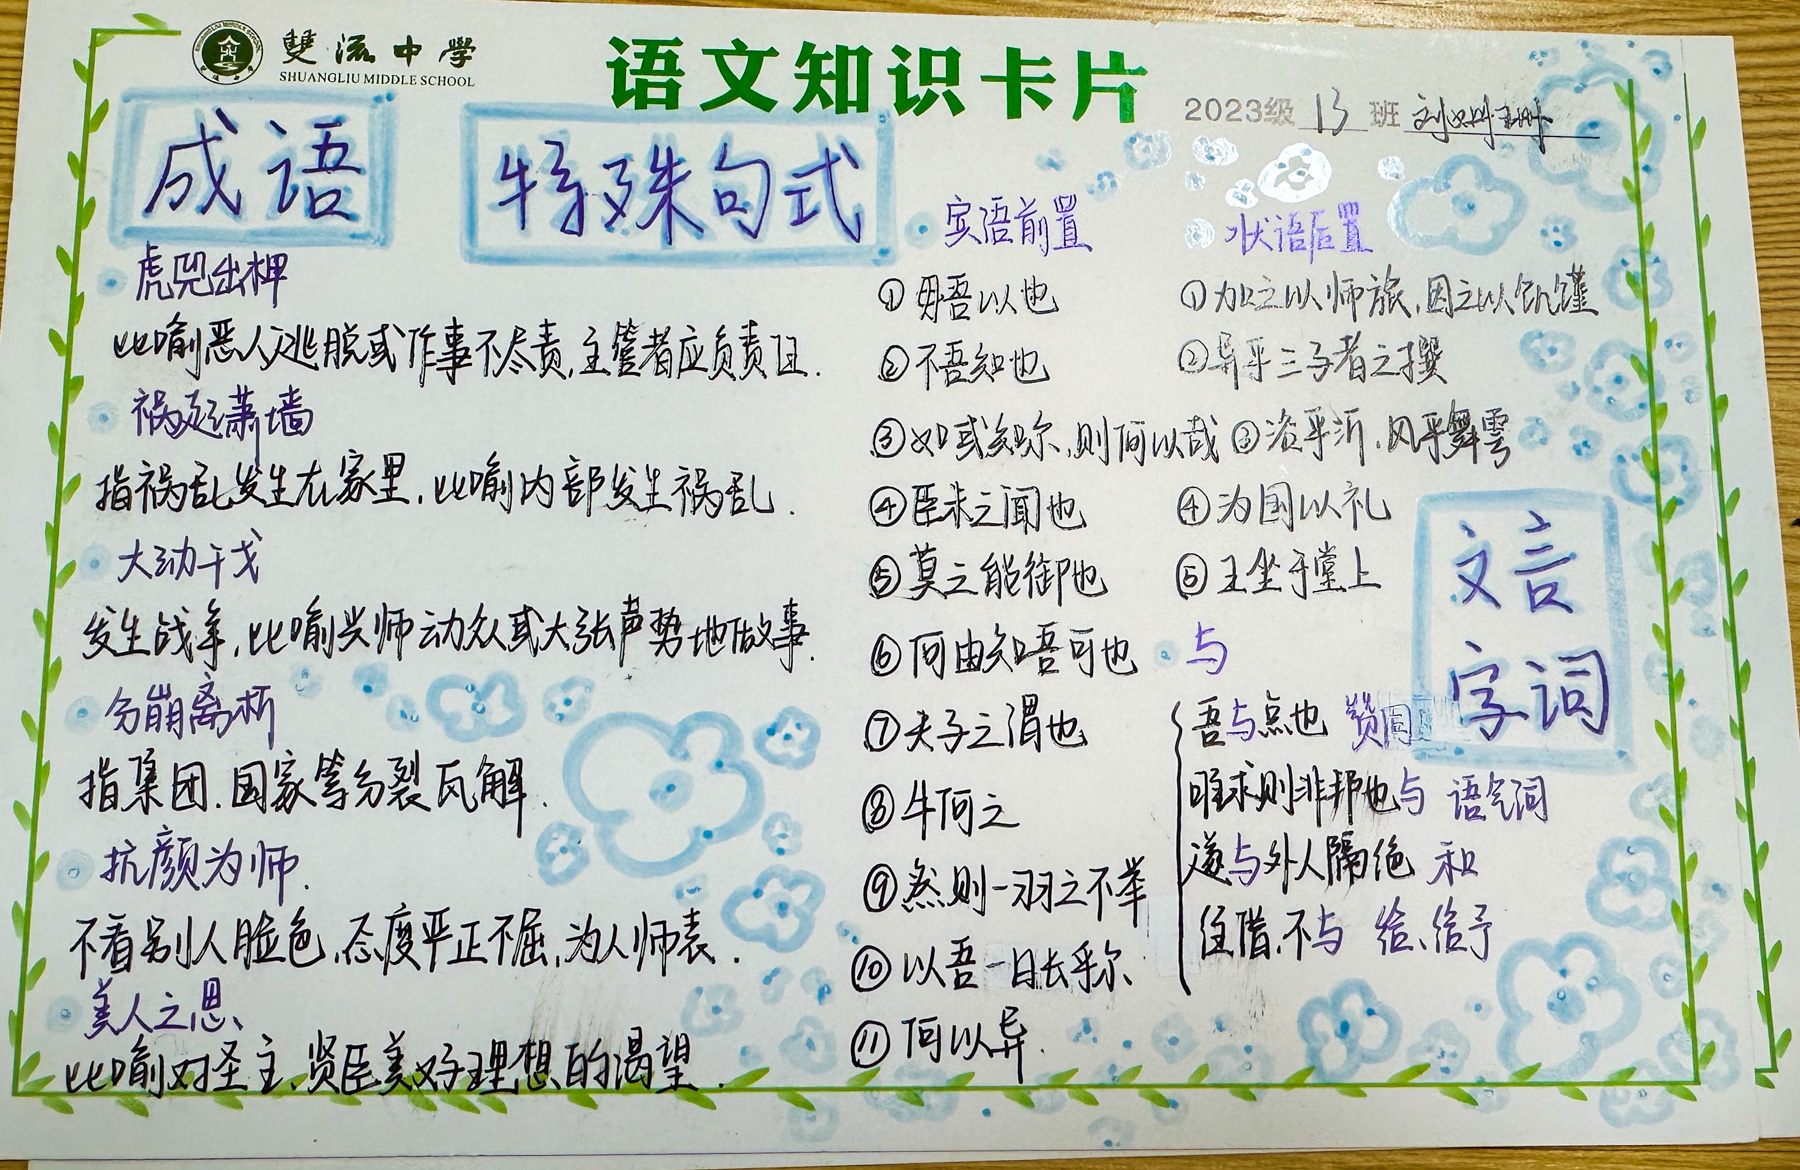 雙流中學
SHUANGLIU MIDDLE SCHOOL
语文知识卡片
2023级 13 班
成语
虎兕出柙
比喻恶人逃脱或作事不尽责,主管者应负责任.
祸起萧墙
指祸乱发生在家里,比喻内部发生祸乱.
大动干戈
发生战争,比喻兴师动众或大张声势地做事.
分崩离析
指集团.国家等分裂瓦解.
抗颜为师.
不看别人脸色,态度严正不屈,为人师表.
美人之思
比喻对圣主、贤臣美好理想的渴望.
特殊句式
宾语前置
①毋吾以也
②不吾知也
③如或知尔,则何以哉
④臣未之闻也
⑤莫之能御也
⑥何由知吾可也
⑦夫子之谓也
⑧牛何之
⑨然则一羽之不举
⑩以吾一日长乎尔
⑪何以异.
状语后置
①加之以师旅,因之以饥馑
②异乎三子者之撰
③浴乎沂,风乎舞雩
④为国以礼
⑤王坐于堂上
文言
字词
与
吾与点也 赞同
唯求则非邦也与 语气词
遂与外人隔绝 和
往借,不与 给、给予